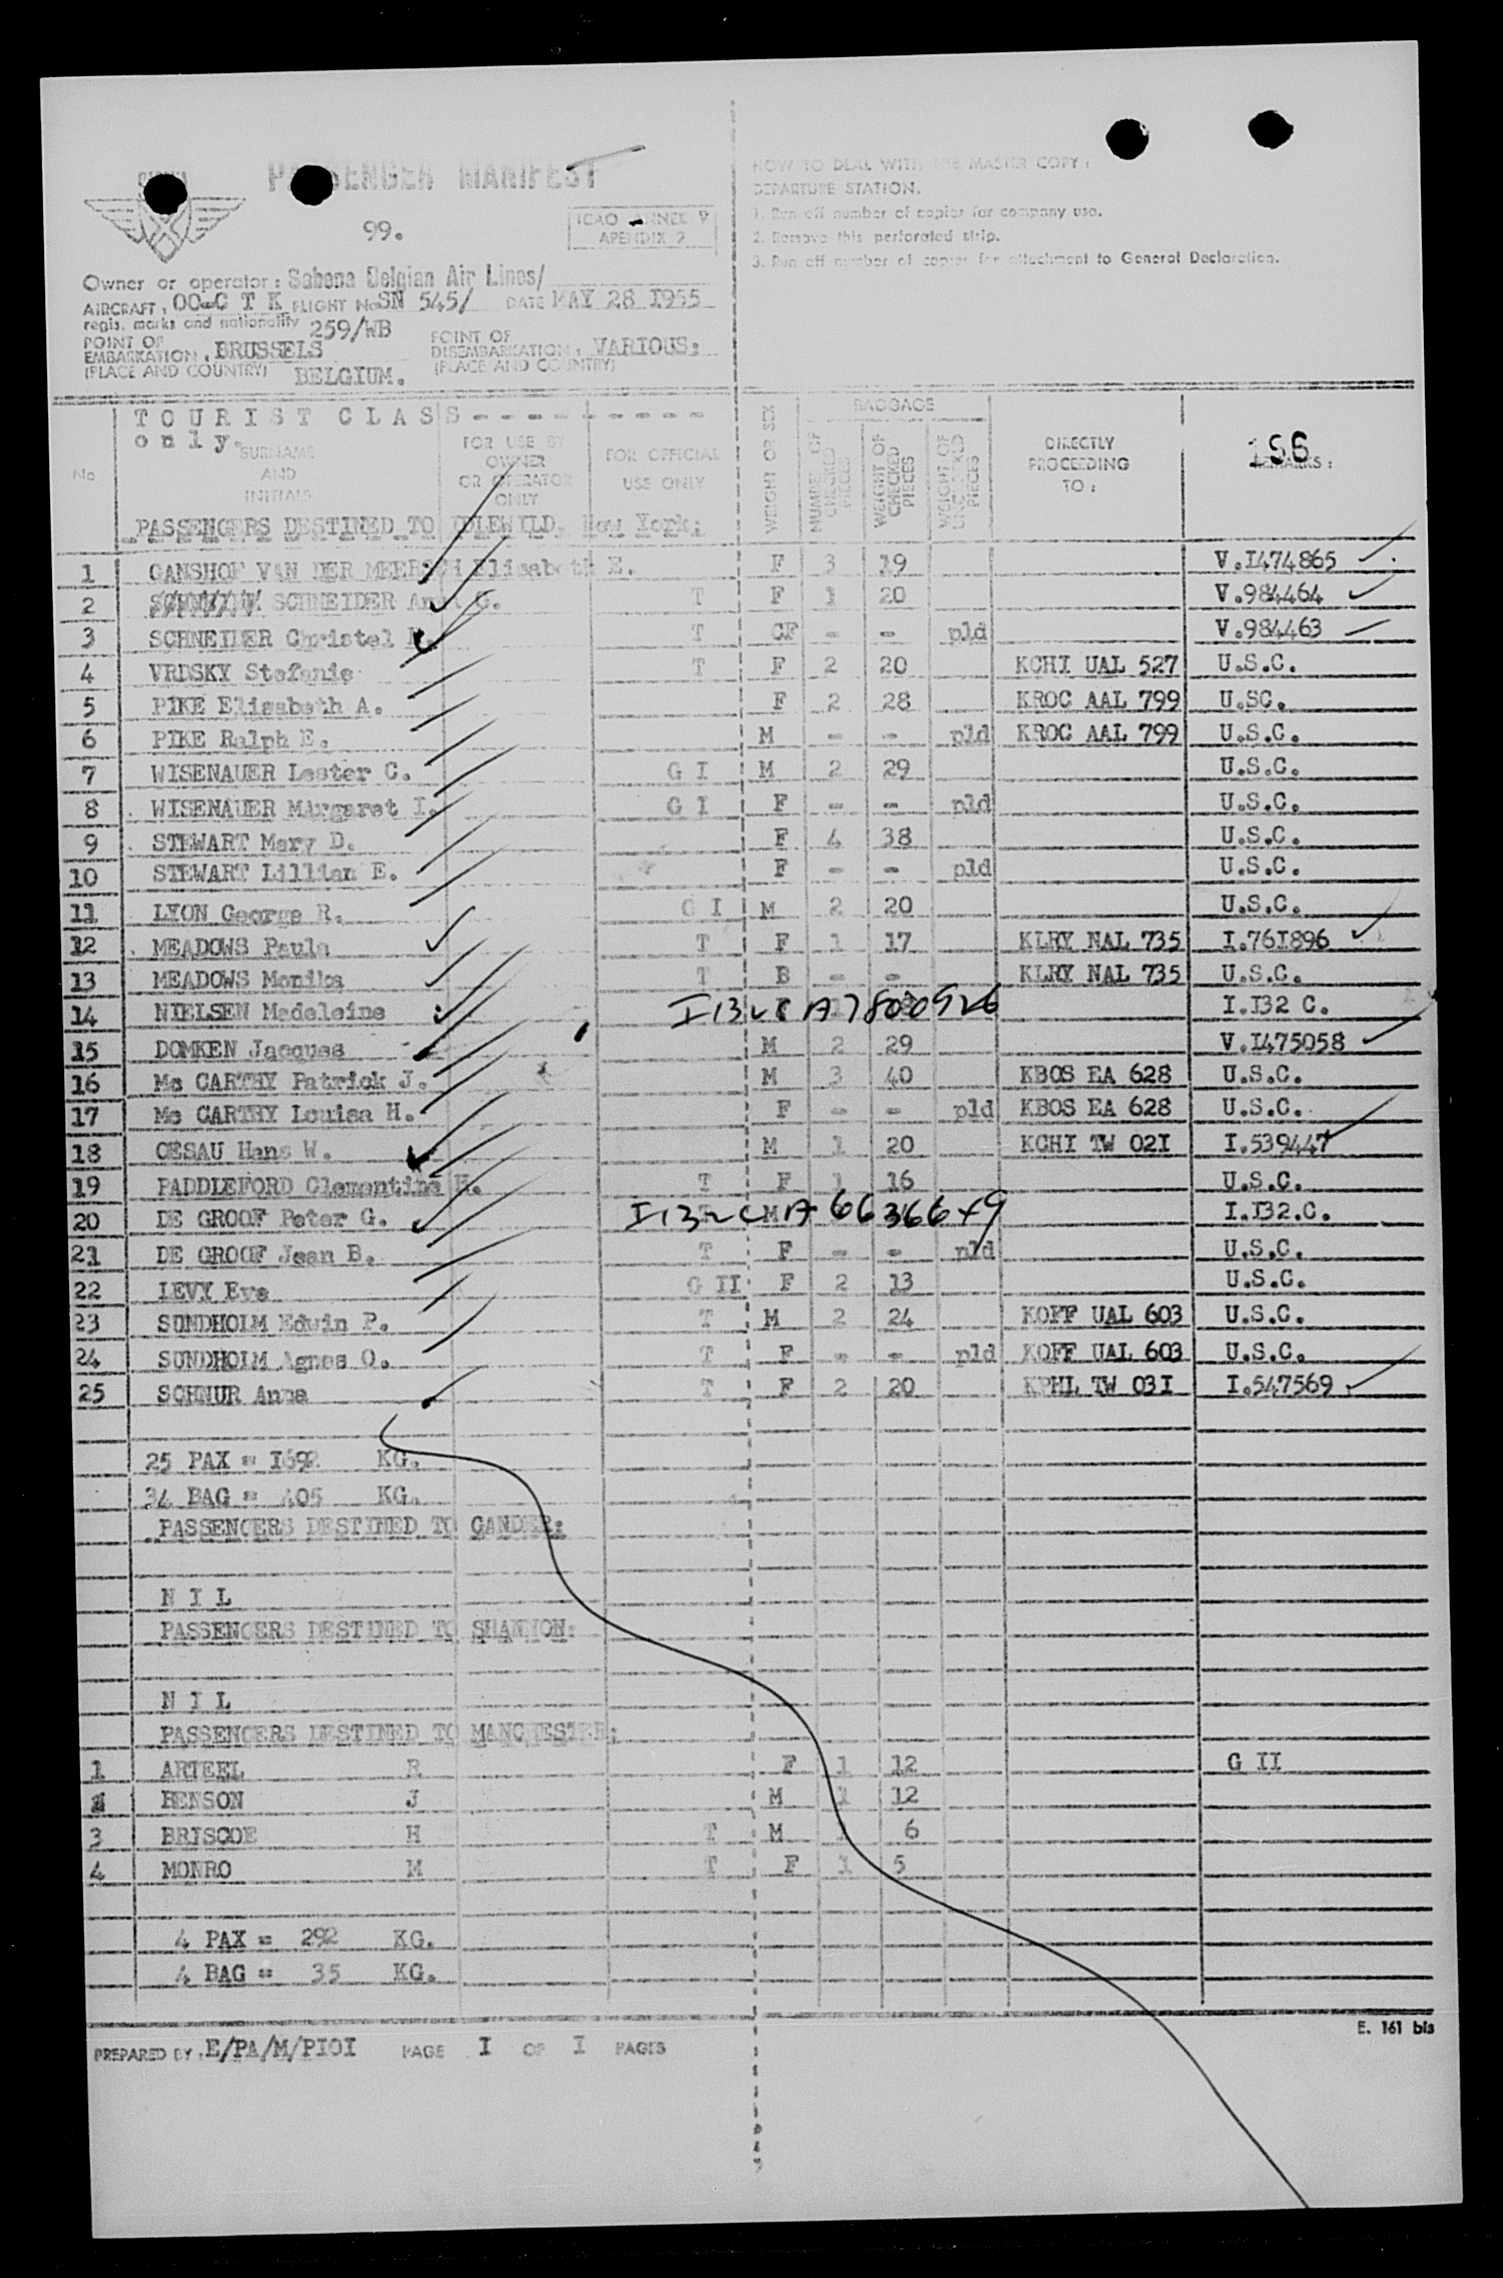 PASSENGER MANIFEST
99.
ICAO ANNEX 9
APENDIX 2
Owner or operator: Sabena Belgian Air Lines/
AIRCRAFT: OO-C T K FLIGHT No SN 545/ DATE MAY 28 I955
regis. marks and nationality 259/WB
POINT OF EMBARKATION: BRUSSELS
(PLACE AND COUNTRY) BELGIUM.
POINT OF DISEMBARKATION: VARIOUS:
(PLACE AND COUNTRY)
HOW TO DEAL WITH THE MASTER COPY:
DEPARTURE STATION.
1. Run off number of copies for company use.
2. Remove this perforated strip.
3. Run off number of copies for attachment to General Declaration.
T O U R I S T C L A S S - - - - - - - - -
o n l y.
No
SURNAME AND INITIALS
FOR USE BY OWNER OR OPERATOR ONLY
FOR OFFICIAL USE ONLY
WEIGHT OR SEX
BAGGAGE
NUMBER OF CHECKED PIECES
WEIGHT OF CHECKED PIECES
WEIGHT OF UNCHECKED PIECES
DIRECTLY PROCEEDING TO:
REMARKS:
PASSENGERS DESTINED TO IDLEWILD, New York:
1 GANSHOF VAN DER MEERSCH Elisabeth E. F 3 19 V.I474865
2 SCHNEIDER G. T F 1 20 V.984464
3 SCHNEIDER Christel T CF - - pld V.984463
4 VRDSKY Stefanie T F 2 20 KCHI UAL 527 U.S.C.
5 PIKE Elisabeth A. F 2 28 KROC AAL 799 U.SC.
6 PIKE Ralph E. M - - pld KROC AAL 799 U.S.C.
7 WISENAUER Lester C. G I M 2 29 U.S.C.
8 WISENAUER Margaret I. G I F - - pld U.S.C.
9 STEWART Mary D. F 4 38 U.S.C.
10 STEWART Lillian E. F - - pld U.S.C.
11 LYON George R. G I M 2 20 U.S.C.
12 MEADOWS Paula T F 1 17 KLRY NAL 735 I.76I896
13 MEADOWS Monika T B - - KLRY NAL 735 U.S.C.
14 NIELSEN Madeleine I 132 C A7800926 I.I32 C.
15 DOMKEN Jacques M 2 29 V.I475058
16 Mc CARTHY Patrick J. M 3 40 KBOS EA 628 U.S.C.
17 Mc CARTHY Louisa H. F - - pld KBOS EA 628 U.S.C.
18 CESAU Hans W. M 1 20 KCHI TW 02I I.539447
19 PADDLEFORD Clementine H. T F 1 16 U.S.C.
20 DE GROOF Peter G. I 132 C M A 6636649 I.I32.C.
21 DE GROOF Jean B. T F - - pld U.S.C.
22 LEVY Eve G II F 2 13 U.S.C.
23 SUNDHOLM Edwin P. T M 2 24 KOFF UAL 603 U.S.C.
24 SUNDHOLM Agnes O. T F - - pld KOFF UAL 603 U.S.C.
25 SCHNUR Anna T F 2 20 KPHL TW 03I I.547569
25 PAX = I692 KG.
34 BAG = 405 KG.
PASSENGERS DESTINED TO GANDER:
N I L
PASSENGERS DESTINED TO SHANNON:
N I L
PASSENGERS DESTINED TO MANCHESTER:
1 ARTEEL R F 1 12 G II
BENSON J M 1 12
3 BRISCOE H T M 1 6
4 MONRO M T F 1 5
4 PAX = 292 KG.
4 BAG = 35 KG.
E. 161 bis
PREPARED BY: E/PA/M/PIOI PAGE I OF I PAGES